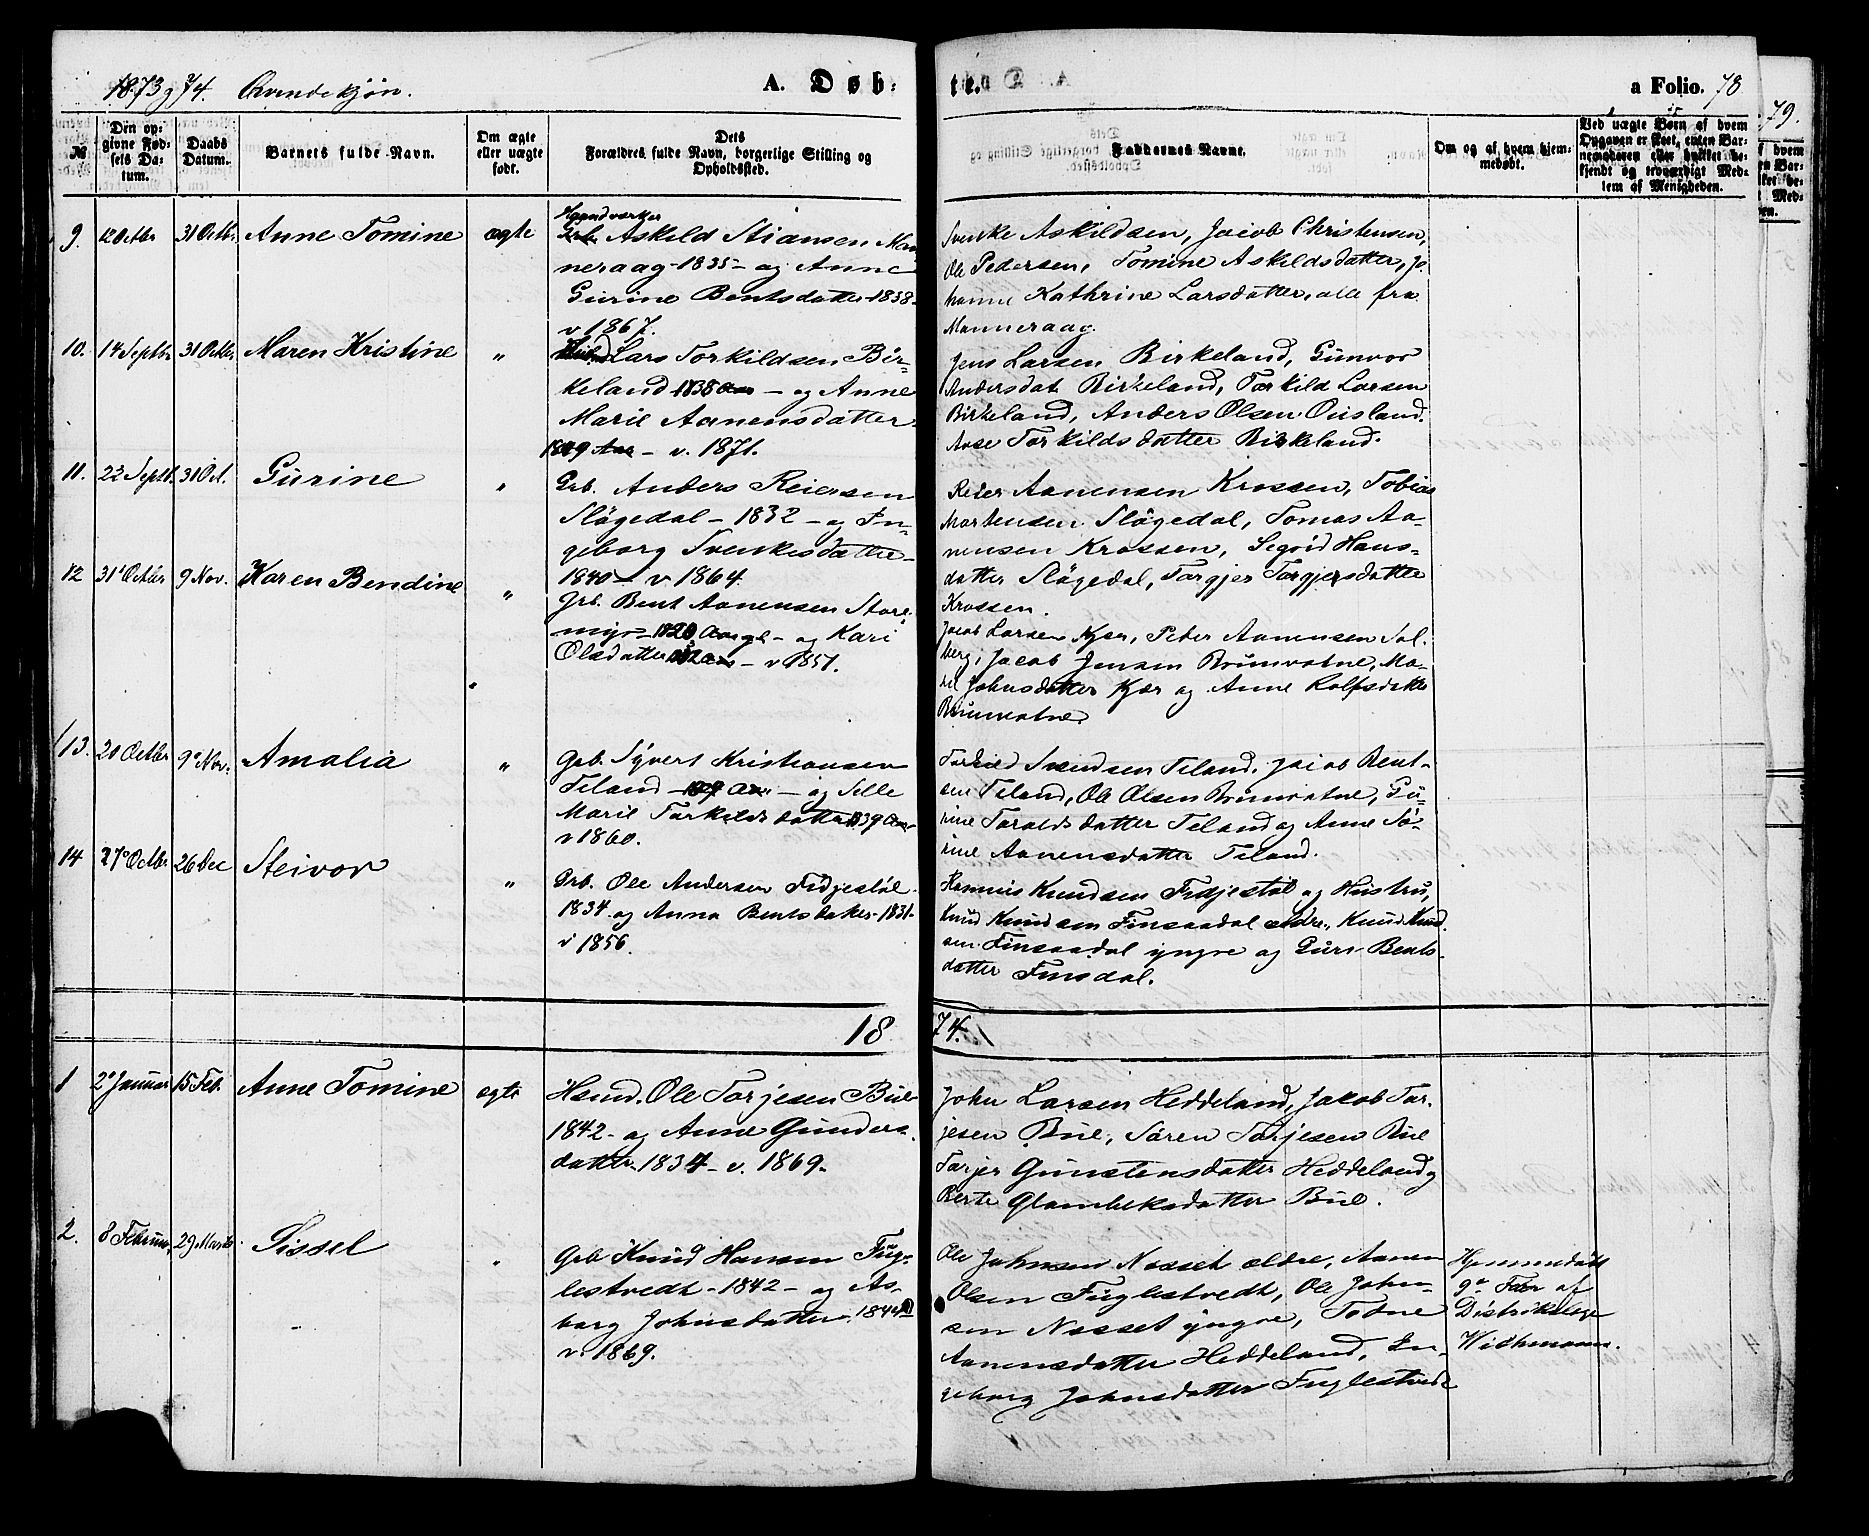 1873 og 74. Qvindekjøn.
A. Døb-
te.
a Folio. 78
79.
№
Den opgivne Fødsels Datum.
Daabs Datum.
Barnets fulde Navn.
Om ægte eller uægte født.
Dets Forældres fulde Navn, borgerlige Stilling og Opholdssted.
Faddernes Navne.
Om og af hvem hjemmedøbt.
Ved uægte Børn af hvem Opgaven er skeet, enten Barnemoderen eller hvilket bekjendt og troværdigt Medlem af Menigheden.
9. 12 Octbr 31 Octbr. Anne Tomine ægte
Haandværker
Grb. Askild Stiansen Man-
neraag - 1835 - og Anne
Gurine Bentsdatter - 1838 -
v 1867.
Svenke Askildsen, Jacob Christensen,
Ole Pedersen, Tomine Askildsdatter, Jo
hanne Kathrine Larsdatter, alle fra
Manneraag.
10. 14 Septbr 31 Octbr. Maren Kristine "
Lars Torkildsen Bir-
keland 1838 - og Anne
Marie Aanensdatter
1849 - v. 1871.
Jens Larsen Birkeland, Gunvor
Andersdat Birkeland, Torkild Larsen
Birkeland, Anders Olsen Ousland.
Aase Torkildsdatter Birkeland.
11. 23 Septb. 31 Oct. Gurine "
Grb. Anders Reiersen
Sløgedal - 1832 - og In-
geborg Svenkesdatter
1840 - v 1864.
Reier Aanensen Krossen, Tobias
Mortensen Sløgedal, Tomas Aa-
nensen Krossen, Segrid Hans-
datter Sløgedal, Torgjer Torgjersdatter
Krossen.
12 31' Octbr 9 Nov. Karen Bendine "
Grb. Bent Aanensen Store-
myr - 1820 - og Kari
Olsdatter - v 1851.
Jacob Larsen Kjær, Peter Aanensen Sol-
berg, Jacob Jensen Brunvatne, Ma-
ri Johnsdatter Kjær og Anne Rolfsdatter
Brunvatne.
13. 20 Octbr 9' Nov. Amalia "
Grb. Syvert Kristiansen
Teland - og Sille
Marie Torkildsdatter 1839
v 1860.
Torkild Svendsen Teland. Jacob Bent-
sen Teland, Ole Olsen Brunvatne, Gu-
rine Taraldsdatter Teland og Anne So-
rine Aanensdatter Teland.
14 27' Octbr 26 Dec Steivor "
Grb. Ole Andersen Fidjestøl
1834. og Anna Bentsdatter - 1831 -
v 1856.
Rasmus Knudsen Fidjestøl og Hustru,
Knud Knudsen Finsaadal ældre, Knud Knud-
sen Finsaadal yngre og Guri Bents-
datter Finsdal.
18 74.
1 2' Januar 15 Feb. Anne Tomine ægte
Hsmd. Ole Torjesen Bue
1842 - og Anne Gunders-
datter 1834 - v. 1869.
John Larsen Heddeland, Jakob Tor-
jesen Bue, Søren Torjesen Bue
Torjer Gunstensdatter Heddeland og
Berte Glambeksdatter Bue.
2. 8 Februar 29 Marts. Sissel "
Grb Knud Hansen Fug-
lestvedt - 1842 - og As-
borg Johnsdatter 1844
v. 1869.
Ole Johnsen Nosset ældre, Aanen
Olsen Fuglestvedt, Ole John-
sen Nosset yngre, Todne
Aanensdatter Heddeland, In-
geborg Johnsdatter Fuglestvedt
Hjemmedøbt
9' Febr af
Distriktslæge
Widtmann.